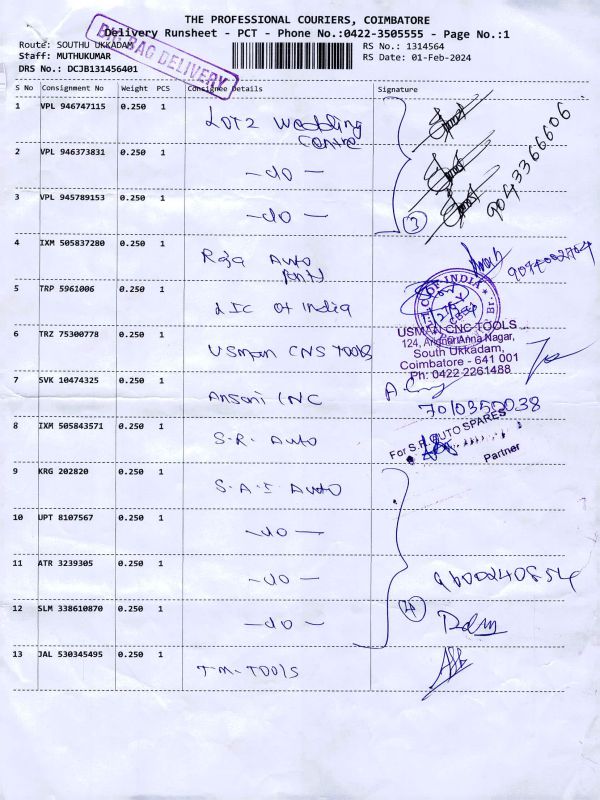 THE PROFESSIONAL COURIERS, COIMBATORE
Delivery Runsheet - PCT - Phone No.:0422-3505555 - Page No.:1
Route: SOUTHU UKKADAM
RS No.: 1314564
Staff: MUTHUKUMAR
RS Date: 01-Feb-2024
DRS No.: DCJB131456401
BIG BAG DELIVERY
S No Consignment No Weight PCS Consignee Details Signature
1 VPL 946747115 0.250 1 LOT2 Wedding
Centre
2 VPL 946373831 0.250 1 -do-
9043366606
3 VPL 945789153 0.250 1 -do-
3
4 IXM 505837280 0.250 1 Raja Auto
5 TRP 5961006 0.250 1 LIC of India
OF INDIA
6 TRZ 75300778 0.250 1 Usman CNS Tools
USMAN CNC TOOLS
124, Anna Nagar,
South Ukkadam,
Coimbatore - 641 001
Ph: 0422 2261488
7 SVK 10474325 0.250 1 Ansari CNC
8 IXM 505843571 0.250 1 S.R. Auto
For S.R. AUTO SPARES
Partner
9 KRG 202820 0.250 1 S.A.I Auto
10 UPT 8107567 0.250 1 -do-
11 ATR 3239305 0.250 1 -do-
9600240854
12 SLM 338610870 0.250 1 -do-
4
13 JAL 530345495 0.250 1 T.M. TOOLS